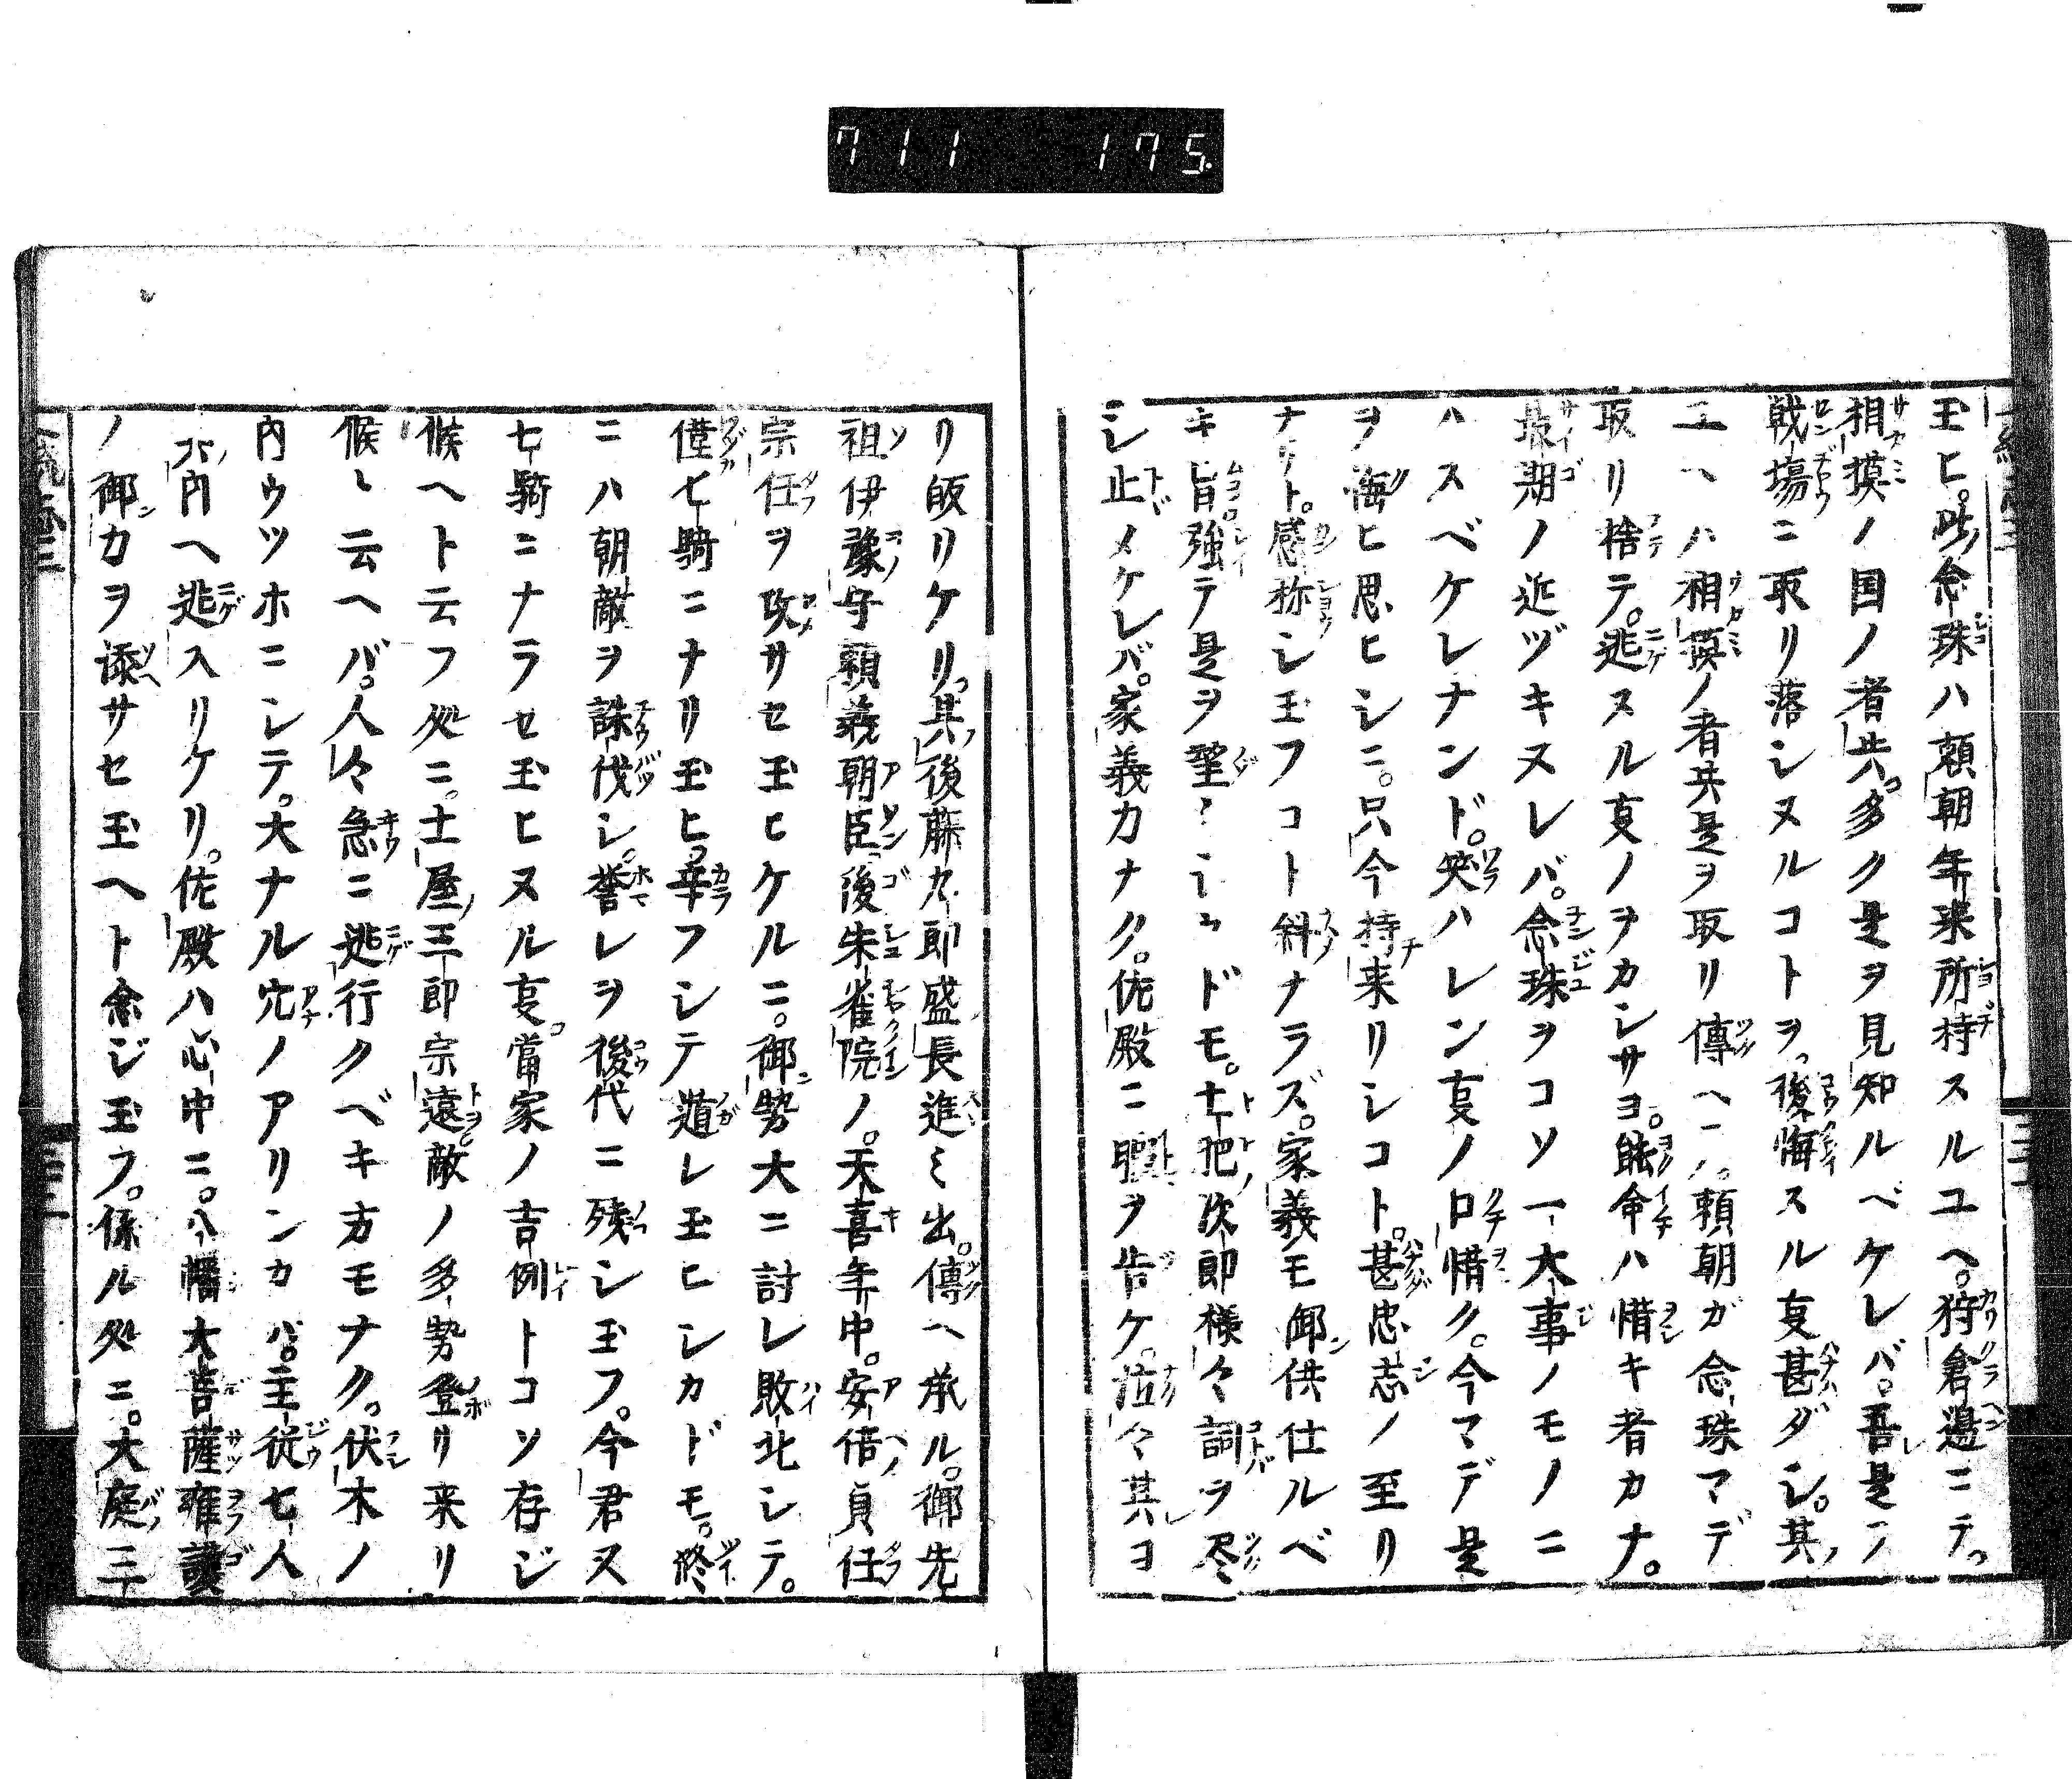 711 175
玉ヒ。此念珠ハ頼朝年来所持スルユヘ。狩倉邉ニテ。
相摸ノ国ノ者共。多ク是ヲ見知ルベケレバ。吾是ヲ
戦場ニ取リ落シヌルコトヲ。後悔スル㕝甚ダシ。其
ユヘハ相摸ノ者共是ヲ取リ傳ヘ頼朝ガ念珠マデ
取リ捨テ。逃スル㕝ノヲカシサヨ。能命ハ惜キ者カナ。
最期ノ近ヅキヌレバ。念珠ヲコソ一大事ノモノニ
ハスベケレナンド。笑ハレン㕝ノ口惜ク。今マデ是
ヲ悔ヒ思ヒシニ。只今持来リシコト。甚忠志ノ至リ
ナリト。感称シ玉フコト斜ナラズ。家義モ御供仕ルベ
キ旨強テ是ヲ望ミシカドモ。土肥次郎様々詞ヲ尽
シ止メケレバ。家義カナク。佐殿ニ暇ヲ告ケ。泣々其ヨ
リ皈リケリ。其後藤九郎盛長進ミ出。傳ヘ承ル。御先
祖伊豫守頼義朝臣。後朱雀院ノ。天喜年中。安倍貞任
宗任ヲ攻サセ玉ヒケルニ。御勢大ニ討レ敗北シテ。
僅七騎ニナリ玉ヒ。辛フシテ遁レ玉ヒシカドモ。終
ニハ朝敵ヲ誅伐シ。誉レヲ後代ニ残シ玉フ。今君ヌ
七騎ニナラセ玉ヒヌル㕝。當家ノ吉例トコソ存ジ
候ヘト云フ処ニ。土屋三郎宗遠。敵ノ多勢登リ来リ
候ト云ヘバ。人々急ニ逃行クベキ方モナク。伏木ノ
内ウツホニシテ。大ナル穴ノアリシカバ。主従七人
穴内ヘ逃入リケリ。佐殿ハ心中ニ。八幡大菩薩擁護
ノ御力ヲ添サセ玉ヘト念ジ玉フ。係ル処ニ。大庭三